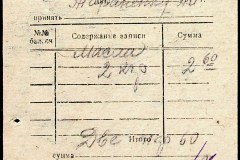 принять
№№ бал. сч
Содержание записи
Сумма
Масла
2 кгр
2 60
Две Итого гр 60
сумма